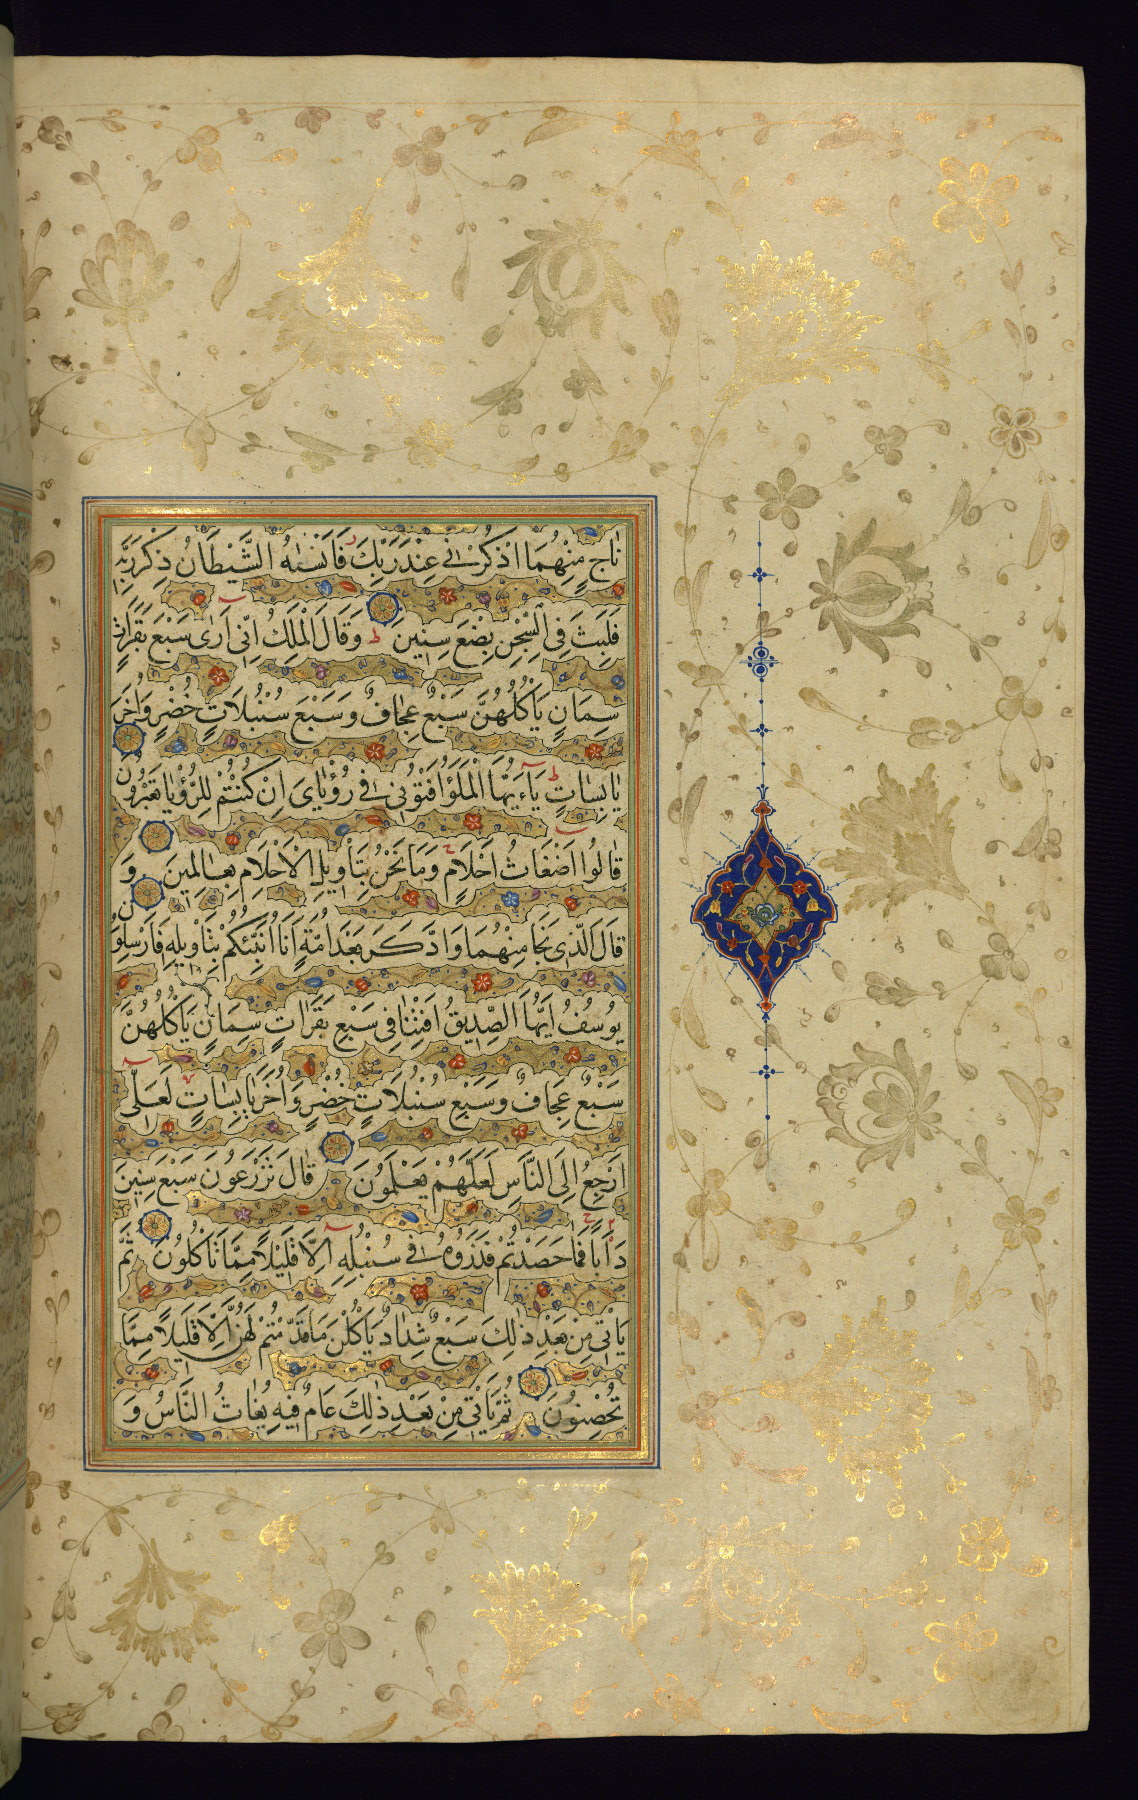 نَاجٍ مِنْهُمَا اذْكُرْنِي عِنْدَ رَبِّكَ فَاَنْسٰیهُ الشَّيْطَانُ ذِكْرَ رَبِّهِ
فَلَبِثَ فِي السِّجْنِ بِضْعَ سِنِينَ ط وَقَالَ الْمَلِكُ اِنِّي اَرٰى سَبْعَ بَقَرَاتٍ
سِمَانٍ يَأْكُلُهُنَّ سَبْعٌ عِجَافٌ وَسَبْعَ سُنْبُلَاتٍ خُضْرٍ وَاُخَرَ
يَابِسَاتٍ ط يَاءَيُّهَا الْمَلَؤُا اَفْتُونِي فِي رُؤْيَايَ اِنْ كُنْتُمْ لِلرُّؤْيَا تَعْبُرُونَ
قَالُوا اَضْغَاثُ اَحْلَامٍ ج وَمَا نَحْنُ بِتَأْوِيلِ الْاَحْلَامِ بِعَالِمِينَ وَ
قَالَ الَّذِي نَجَا مِنْهُمَا وَادَّكَرَ بَعْدَ اُمَّةٍ اَنَا اُنَبِّئُكُمْ بِتَأْوِيلِهِ فَاَرْسِلُونِ
يُوسُفُ اَيُّهَا الصِّدِّيقُ اَفْتِنَا فِي سَبْعِ بَقَرَاتٍ سِمَانٍ يَأْكُلُهُنَّ
سَبْعٌ عِجَافٌ وَسَبْعِ سُنْبُلَاتٍ خُضْرٍ وَاُخَرَ يَابِسَاتٍ لَعَلِّي
اَرْجِعُ اِلَى النَّاسِ لَعَلَّهُمْ يَعْلَمُونَ قَالَ تَزْرَعُونَ سَبْعَ سِنِينَ
دَأَبًا فَمَا حَصَدْتُمْ فَذَرُوهُ فِي سُنْبُلِهِ اِلَّا قَلِيلًا مِمَّا تَأْكُلُونَ ثُمَّ
يَأْتِي مِنْ بَعْدِ ذٰلِكَ سَبْعٌ شِدَادٌ يَأْكُلْنَ مَا قَدَّمْتُمْ لَهُنَّ اِلَّا قَلِيلًا مِمَّا
تُحْصِنُونَ ثُمَّ يَأْتِي مِنْ بَعْدِ ذٰلِكَ عَامٌ فِيهِ يُغَاثُ النَّاسُ وَ